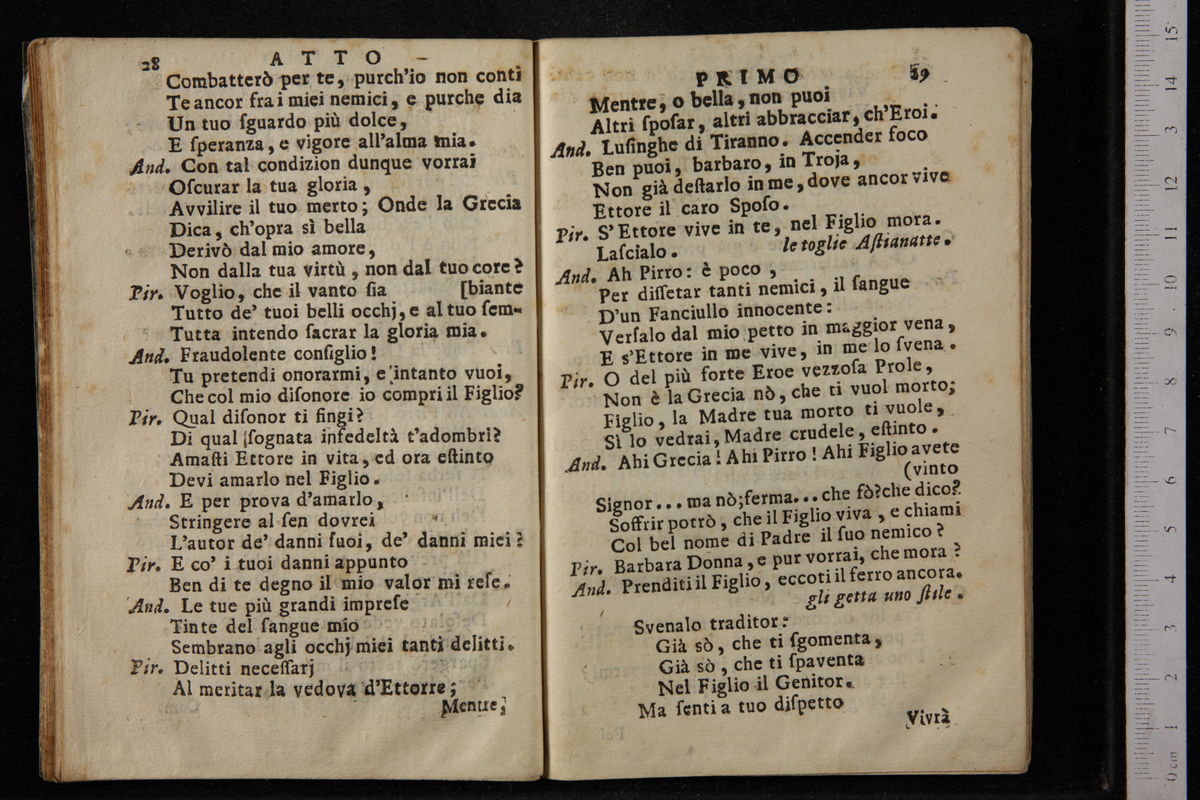 28 ATTO
Combatterò per te, purch'io non conti
Te ancor fra i miei nemici, e purche dia
Un tuo ſguardo più dolce,
E ſperanza, e vigore all'alma mia.
And. Con tal condizion dunque vorrai
Oſcurar la tua gloria,
Avvilire il tuo merto; Onde la Grecia
Dica, ch'opra sì bella
Derivò dal mio amore,
Non dalla tua virtù, non dal tuo core?
Pir. Voglio, che il vanto ſia [biante
Tutto de' tuoi belli occhj, e al tuo ſem-
Tutta intendo ſacrar la gloria mia.
And. Fraudolente conſiglio!
Tu pretendi onorarmi, e intanto vuoi,
Che col mio diſonore io compri il Figlio?
Pir. Qual diſonor ti fingi?
Di qual ſognata infedeltà t'adombri?
Amaſti Ettore in vita, ed ora eſtinto
Devi amarlo nel Figlio.
And. E per prova d'amarlo,
Stringere al ſen dovrei
L'autor de' danni ſuoi, de' danni miei?
Pir. E co' i tuoi danni appunto
Ben di te degno il mio valor mi reſe.
And. Le tue più grandi impreſe
Tinte del ſangue mio
Sembrano agli occhj miei tanti delitti.
Pir. Delitti neceſſarj
Al meritar la vedova d'Ettorre;
Mentre,
PRIMO 29
Mentre, o bella, non puoi
Altri ſpoſar, altri abbracciar, ch'Eroi.
And. Luſinghe di Tiranno. Accender foco
Ben puoi, barbaro, in Troja,
Non già deſtarlo in me, dove ancor vive
Ettore il caro Spoſo.
Pir. S'Ettore vive in te, nel Figlio mora.
Laſcialo. le toglie Aſtianatte.
And. Ah Pirro: è poco,
Per diſſetar tanti nemici, il ſangue
D'un Fanciullo innocente:
Verſalo dal mio petto in maggior vena,
E s'Ettore in me vive, in me lo ſvena.
Pir. O del più forte Eroe vezzoſa Prole,
Non è la Grecia nò, che ti vuol morto;
Figlio, la Madre tua morto ti vuole,
Sì lo vedrai, Madre crudele, eſtinto.
And. Ahi Grecia! Ahi Pirro! Ahi Figlio avete
(vinto
Signor... ma nò; ferma... che fò? che dico?
Soffrir potrò, che il Figlio viva, e chiami
Col bel nome di Padre il ſuo nemico?
Pir. Barbara Donna, e pur vorrai, che mora?
And. Prenditi il Figlio, eccoti il ferro ancora.
gli getta uno ſtile.
Svenalo traditor:
Già sò, che ti ſgomenta,
Già sò, che ti ſpaventa
Nel Figlio il Genitor.
Ma ſenti a tuo diſpetto
Vivrà
0 cm 1 2 3 4 5 6 7 8 9 10 11 12 13 14 15